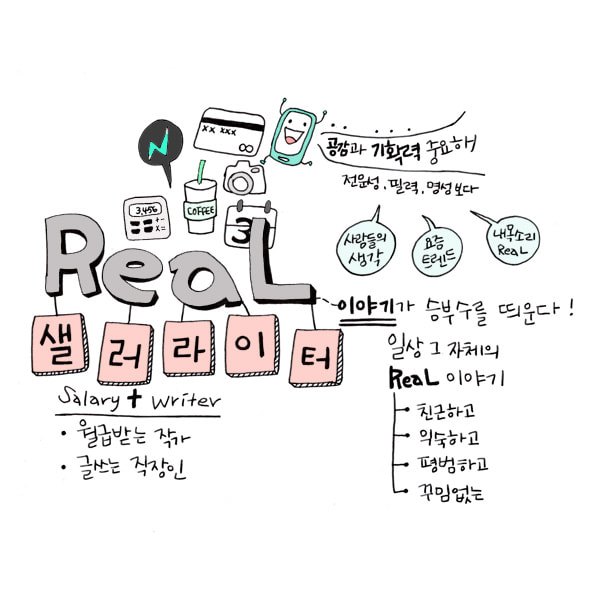 xx xxx
공감과 기획력 중요해
3,456
COFFEE
3
전문성, 필력, 명성보다
사람들의
생각
요즘
트렌드
내목소리
ReaL
ReaL
이야기가 승부수를 띄운다!
샐러라이터
일상 그 자체의
ReaL 이야기
Salary + writer
· 월급받는 작가
· 글쓰는 직장인
친근하고
익숙하고
평범하고
꾸밈없는